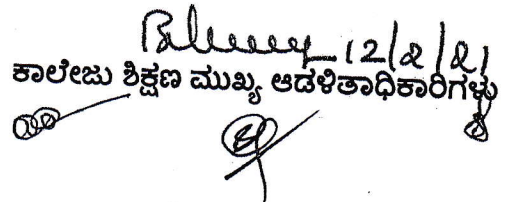 12/2/21
ಕಾಲೇಜು ಶಿಕ್ಷಣ ಮುಖ್ಯ ಆಡಳಿತಾಧಿಕಾರಿಗಳು